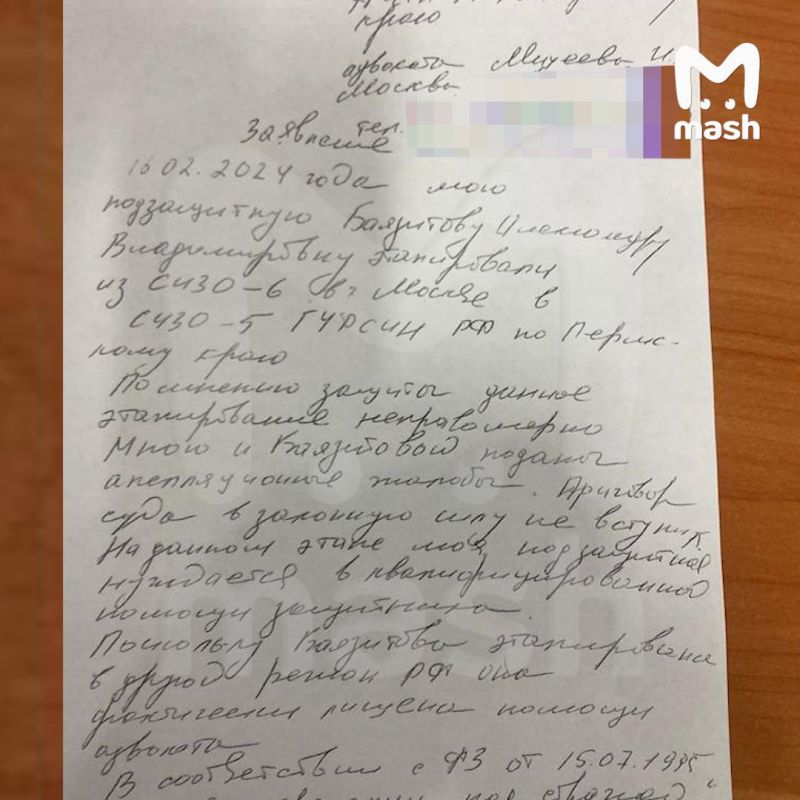 краю
адвоката Михеева И.
Москва
тел.
Заявление
16.02.2024 года мою
подзащитную Баязитову Александру
Владимировну этапировали
из СИЗО-6 в г Москве в
СИЗО-5 ГУФСИН РФ по Пермс-
кому краю
По мнению защиты данное
этапирование неправомерно
Мною и Баязитовой поданы
апелляционные жалобы. Приговор
суда в законную силу не вступил.
На данном этапе моя подзащитная
нуждается в квалифицированной
помощи защитника.
Поскольку Баязитова этапирована
в другой регион РФ она
фактически лишена помощи
адвоката
В соответствии с ФЗ от 15.07.1995
под стражей"
mash
mash